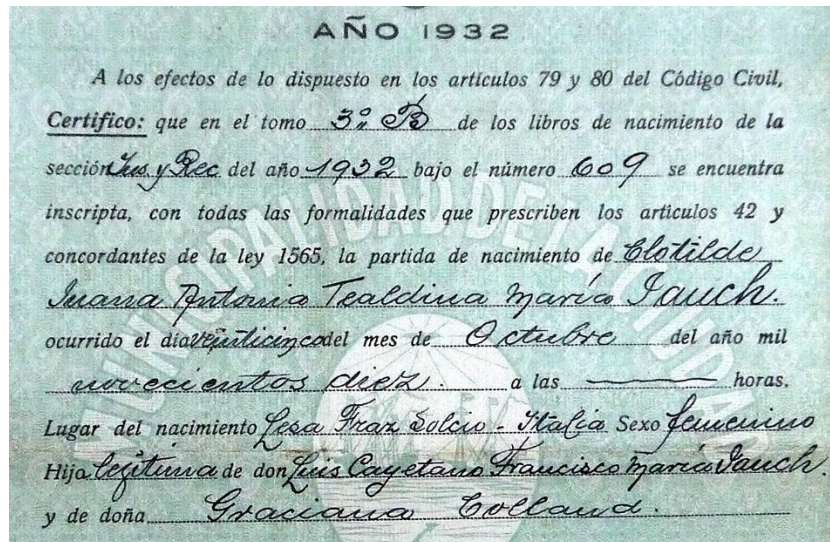 AÑO 1932
A los efectos de lo dispuesto en los artículos 79 y 80 del Código Civil,
Certifico: que en el tomo 3º B de los libros de nacimiento de la
sección Ins. y Rec. del año 1932 bajo el número 609 se encuentra
inscripta, con todas las formalidades que prescriben los artículos 42 y
concordantes de la ley 1565, la partida de nacimiento de Clotilde
Juana Antonia Tealdina María Jauch.
ocurrido el día veinticinco del mes de Octubre del año mil
novecientos diez. a las horas.
Lugar del nacimiento Lesa Fraz Solcio - Italia Sexo femenino
Hija legítima de don Luis Cayetano Francisco María Jauch.
y de doña Graciana Colland.
MUNICIPALIDAD DE LA CIUDAD